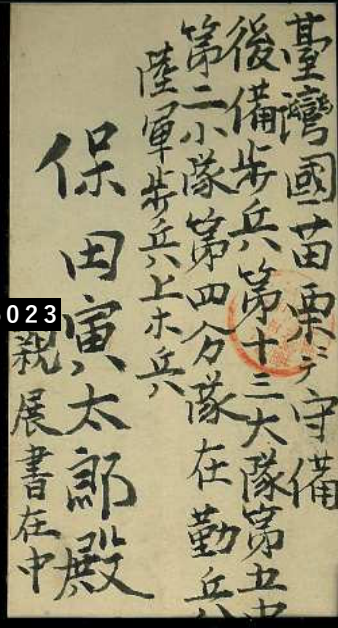 臺灣國苗栗ニテ守備
後備歩兵第十三大隊第五中
第二小隊第四分隊在勤兵
陸軍歩兵上木兵
保田寅太郎殿
親展書在中
6023